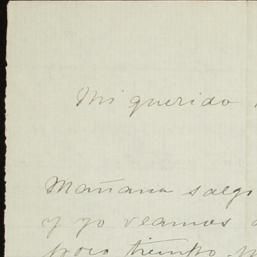 Mi querido
Mañana salgo
y yo veamos
poco tiempo